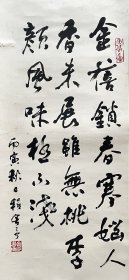 金蓓鎖春寒惱人
香未展雖無桃李
顏風味極不淺
丙寅秋日